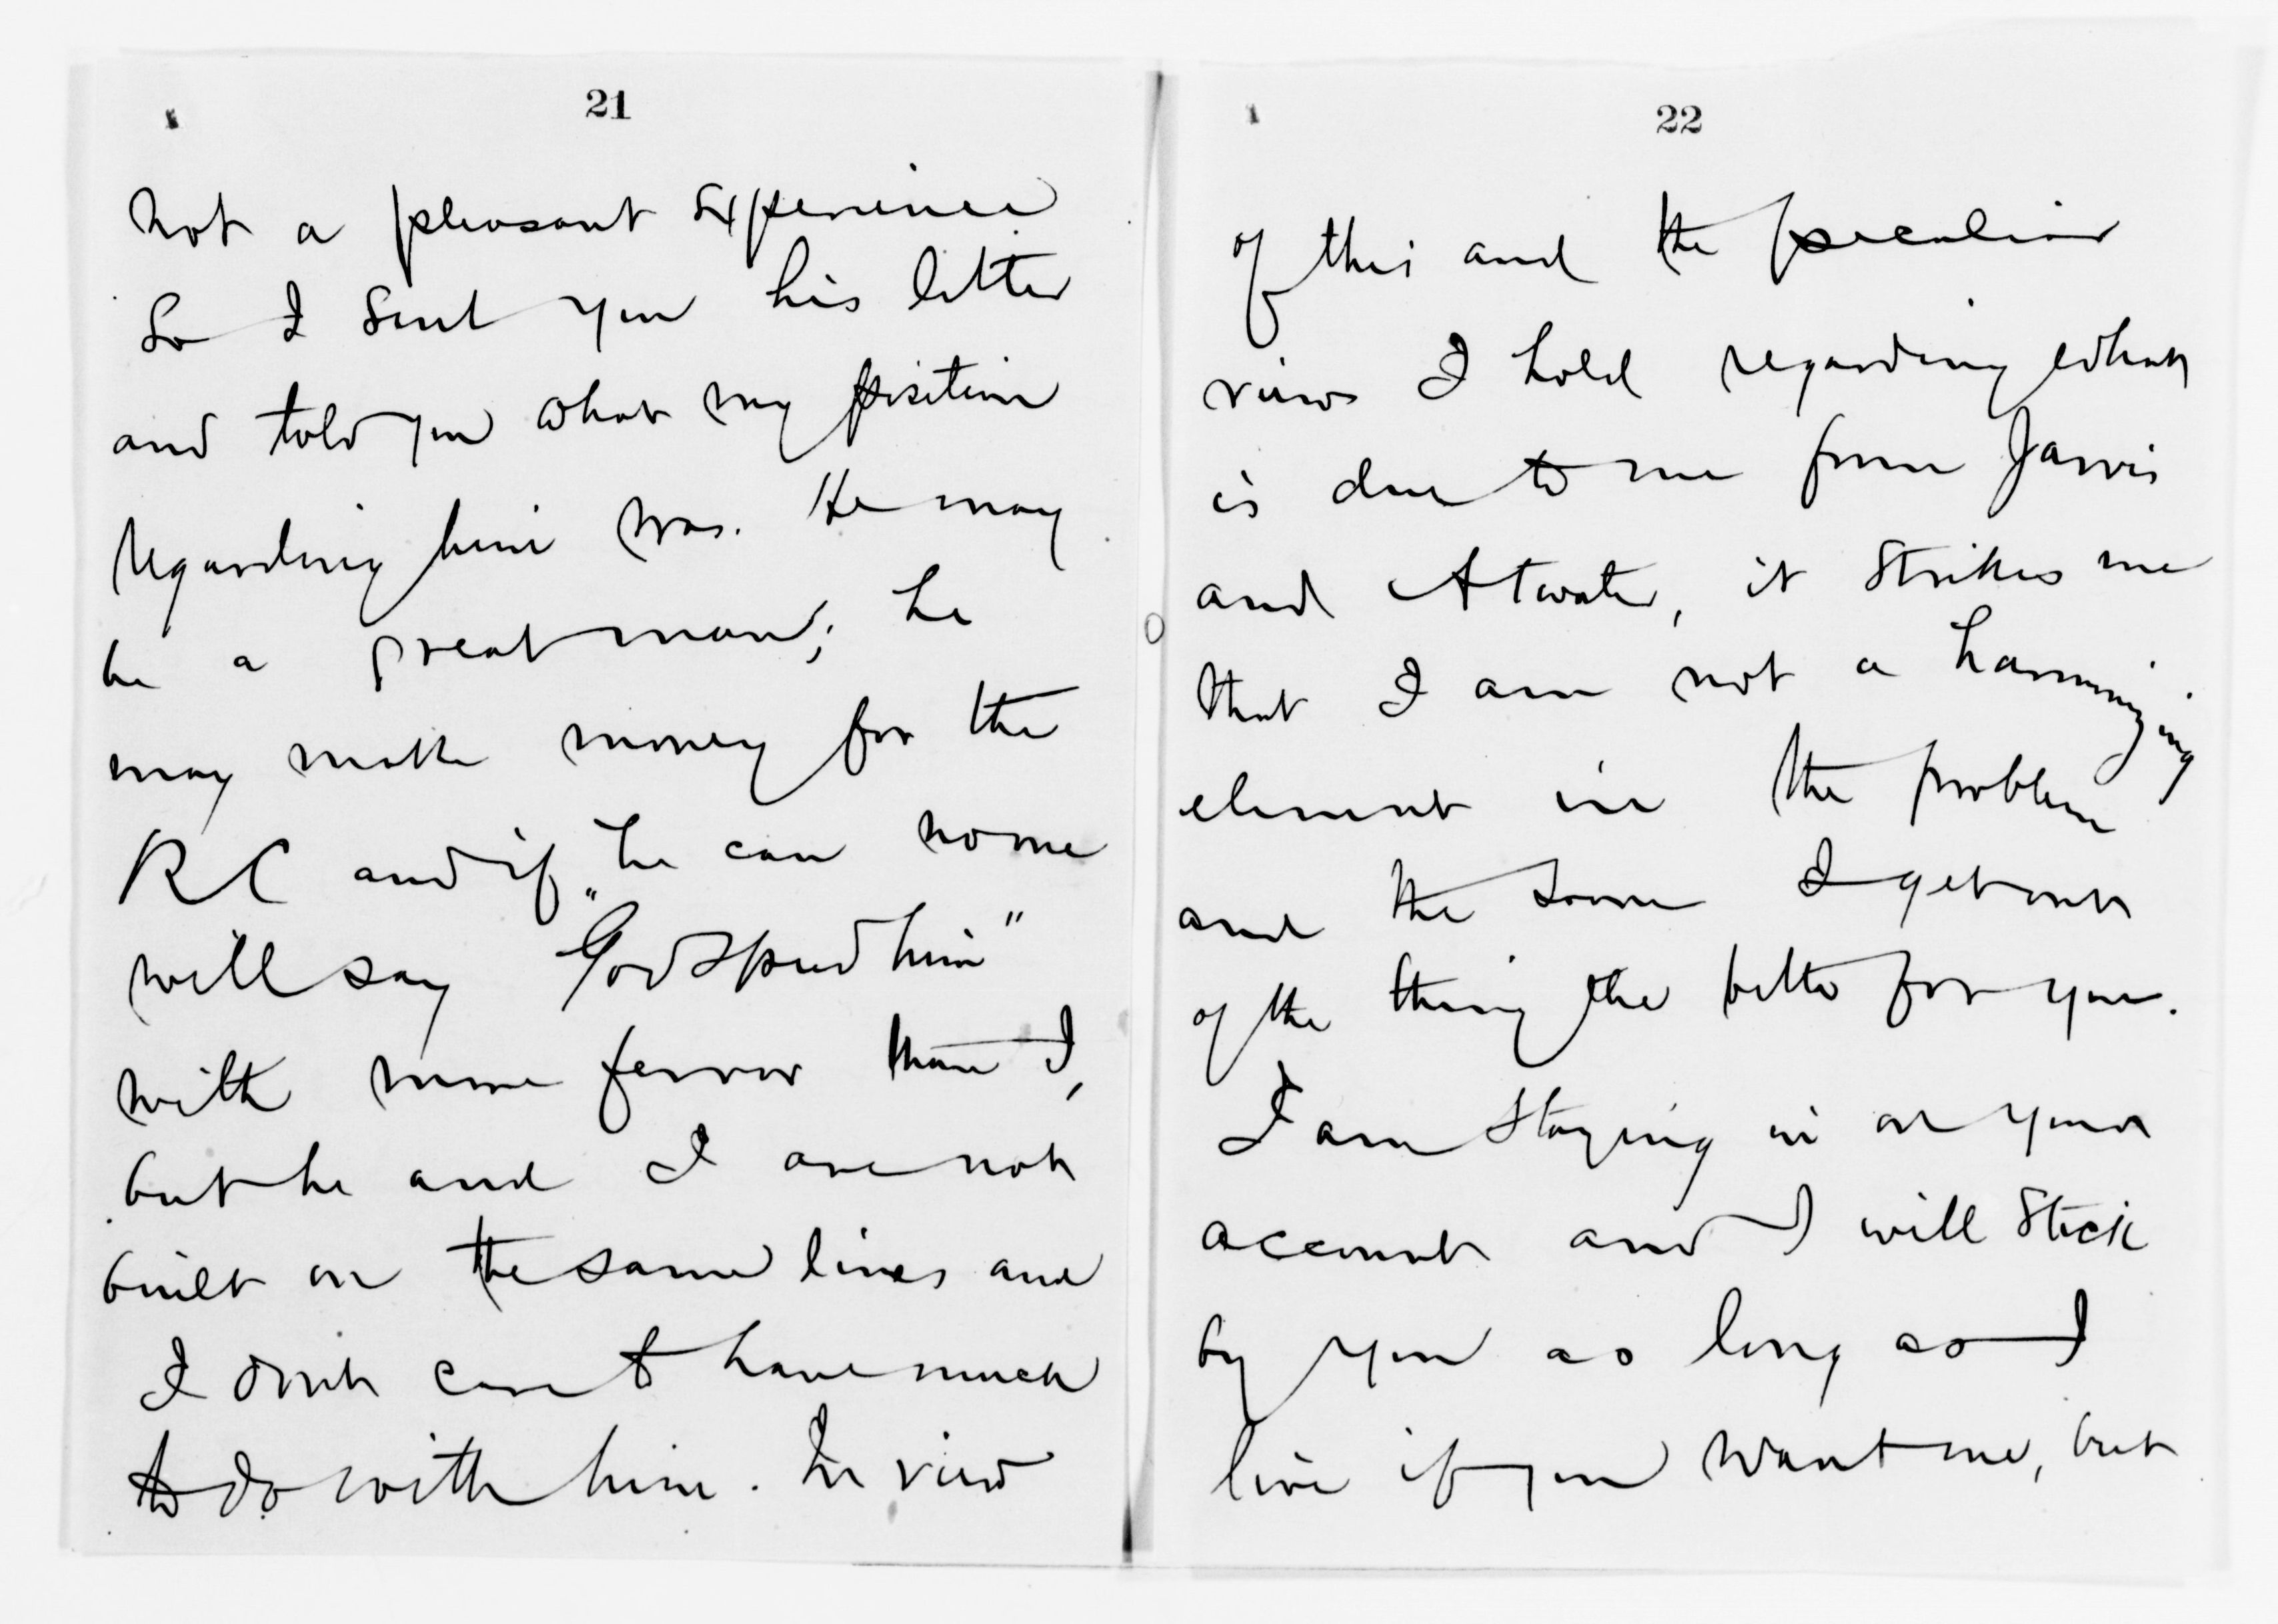 21
not a pleasant experience
So I sent you his letter
and told you what my position
regarding him was. He may
be a great man; he
may make money for the
RC and if he can none
will say "God speed him"
with more fervor than I,
but he and I are not
built on the same lines and
I don't care to have much
to do with him. In view
22
of this and the peculiar
views I hold regarding what
is due to me from Jarvis
and Atwater, it strikes me
that I am not a harmonizing
element in the problem
and the sooner I get out
of the thing the better for you.
I am staying in on your
account and I will stick
by you as long as I
live if you want me, but